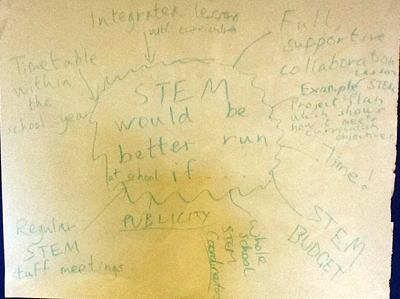 Integrated lessons
with curriculum
Timetable
within
the
school year
Full
supportive
collaboration
Example STEM
Lesson
Project Plan
which shows
how it meets
curriculum
objectives
Time!
STEM
would be
better run
at school if ...
STEM
BUDGET
Whole
School
STEM
Coordinator
PUBLICITY
Regular
STEM
staff meetings